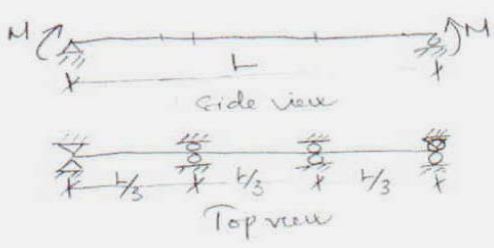 M M
L
side view
L/3 L/3 L/3
Top view